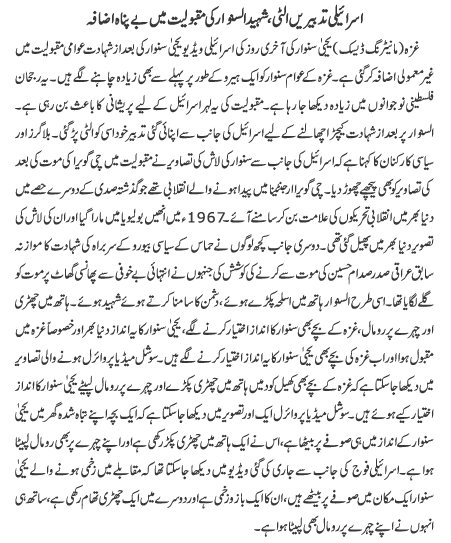 اسرائیلی تدبیریں الٹی، شہید السنوار کی مقبولیت میں بے پناہ اضافہ
غزہ (مانیٹرنگ ڈیسک) یحییٰ سنوار کی آخری روز کی اسرائیلی ویڈیو یحییٰ سنوار کی بعد از شہادت عوامی مقبولیت میں
غیر معمولی اضافہ کر گیا ہے۔ غزہ کے عوام سنوار کو ایک ہیرو کے طور پر پہلے سے بھی زیادہ چاہنے لگے ہیں۔ یہ رجحان
فلسطینی نوجوانوں میں زیادہ دیکھا جا رہا ہے۔ مقبولیت کی یہ لہر اسرائیل کے لیے پریشانی کا باعث بن رہی ہے۔
السنوار پر بعد از شہادت کیچڑ اچھالنے کے لیے اسرائیل کی جانب سے اپنائی گئی تدبیر خود اسی کو الٹی پڑ گئی۔ بلاگرز اور
سیاسی کارکنان کا کہنا ہے کہ اسرائیل کی جانب سے سنوار کی لاش کی تصاویر نے مقبولیت میں چی گویرا کی موت کی بعد
کی تصاویر کو بھی پیچھے چھوڑ دیا۔ چی گویرا ارجنٹینا میں پیدا ہونے والے انقلابی تھے جو گذشتہ صدی کے دوسرے حصے میں
دنیا بھر میں انقلابی تحریکوں کی علامت بن کر سامنے آئے۔ 1967ء میں انھیں بولیویا میں مارا گیا اور ان کی لاش کی
تصویر دنیا بھر میں پھیل گئی تھی۔ دوسری جانب کچھ لوگوں نے حماس کے سیاسی بیورو کے سربراہ کی شہادت کا موازنہ
سابق عراقی صدر صدام حسین کی موت سے کرنے کی کوشش کی جنہوں نے انتہائی بے خوفی سے پھانسی گھاٹ پر موت کو
گلے لگایا تھا۔ اسی طرح السنوار ہاتھ میں اسلحہ پکڑے ہوئے، دشمن کا سامنا کرتے ہوئے شہید ہوئے۔ ہاتھ میں چھڑی
اور چہرے پر رومال، غزہ کے بچے بھی یحییٰ سنوار کا انداز اختیار کرنے لگے، یحییٰ سنوار کا یہ انداز دنیا بھر اور خصوصاً غزہ میں
مقبول ہوا اور اب غزہ کی بچے بھی یہ انداز اختیار کرنے لگے ہیں۔ سوشل میڈیا پر وائرل ہونے والی تصاویر
میں دیکھا جا سکتا ہے کہ غزہ کے بچے بھی کھیل کود میں ہاتھ میں چھڑی پکڑے اور چہرے پر رومال لپیٹے یحییٰ سنوار کا انداز
اختیار کیے ہوئے ہیں۔ سوشل میڈیا پر وائرل ایک اور تصویر میں دیکھا جا سکتا ہے کہ ایک بچہ اپنے تباہ شدہ گھر میں یحییٰ
سنوار کے انداز میں ہی صوفے پر بیٹھا ہے، اس نے ایک ہاتھ میں چھڑی پکڑ رکھی ہے اور اپنے چہرے پر بھی رومال لپیٹا
ہوا ہے۔ اسرائیلی فوج کی جانب سے جاری کی گئی ویڈیو میں دیکھا جا سکتا تھا کہ مقابلے میں زخمی ہونے والے یحییٰ
سنوار ایک مکان میں صوفے پر بیٹھے ہیں، ان کا ایک بازو زخمی ہے اور دوسرے میں ایک چھڑی تھام رکھی ہے، ساتھ ہی
انہوں نے اپنے چہرے پر رومال بھی لپیٹا ہوا ہے۔